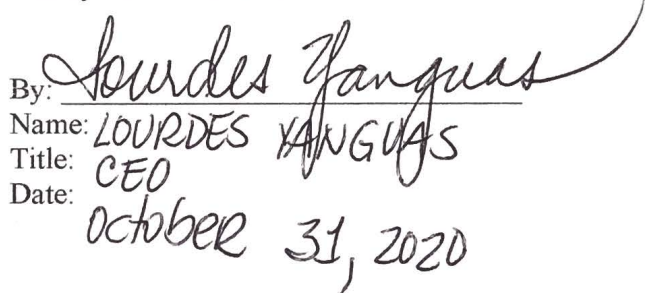 By: Lourdes Yanguas
Name: LOURDES YANGUAS
Title: CEO
Date: October 31, 2020